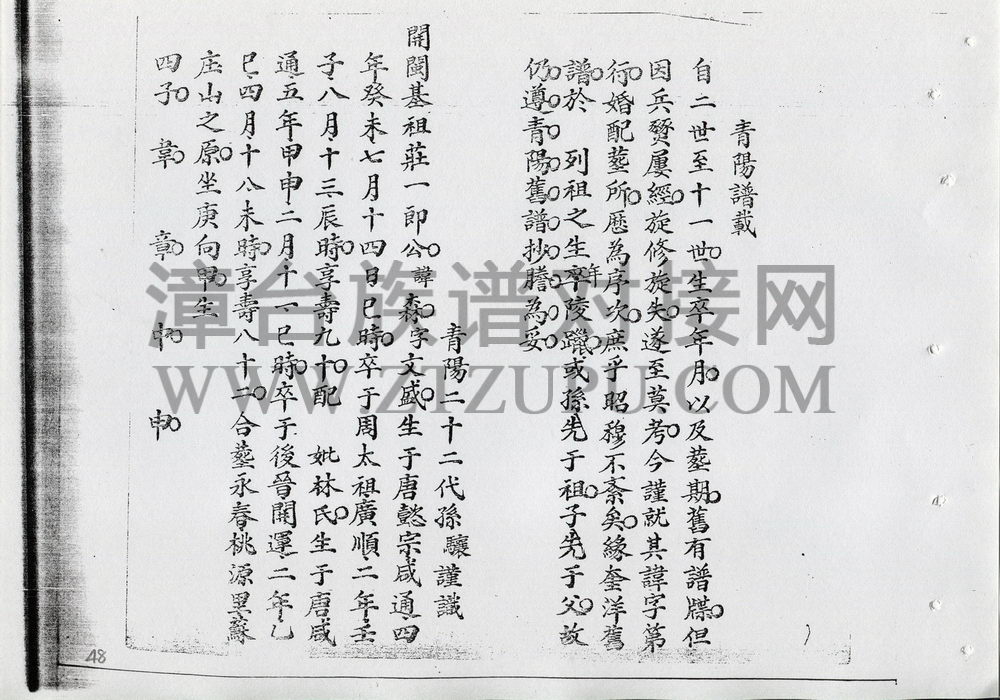 青陽譜載
自二世至十一世生卒年月以及塟期舊有譜牒但
因兵燹屢經旋修旋失遂至莫考今謹就其諱字第
行婚配塟所歷為序次庶乎昭穆不紊矣緣奎洋舊
譜於 列祖之生卒年陵躐或孫先于祖子先于父故
仍遵青陽舊譜抄謄為妥
青陽二十二代孫驤謹識
開閩基祖莊一郎公諱森字文盛生于唐懿宗咸通四
年癸未七月十四日巳時卒于周太祖廣順二年壬
子八月十三辰時享壽九十配 妣林氏生于唐咸
通五年甲申二月十一巳時卒于後晉開運二年乙
巳四月十八未時享壽八十二合塟永春桃源里蘇
庄山之原坐庚向甲生
四子 韋 章 中 申
48
漳台族谱对接网
WWW.ZTZUPU.COM